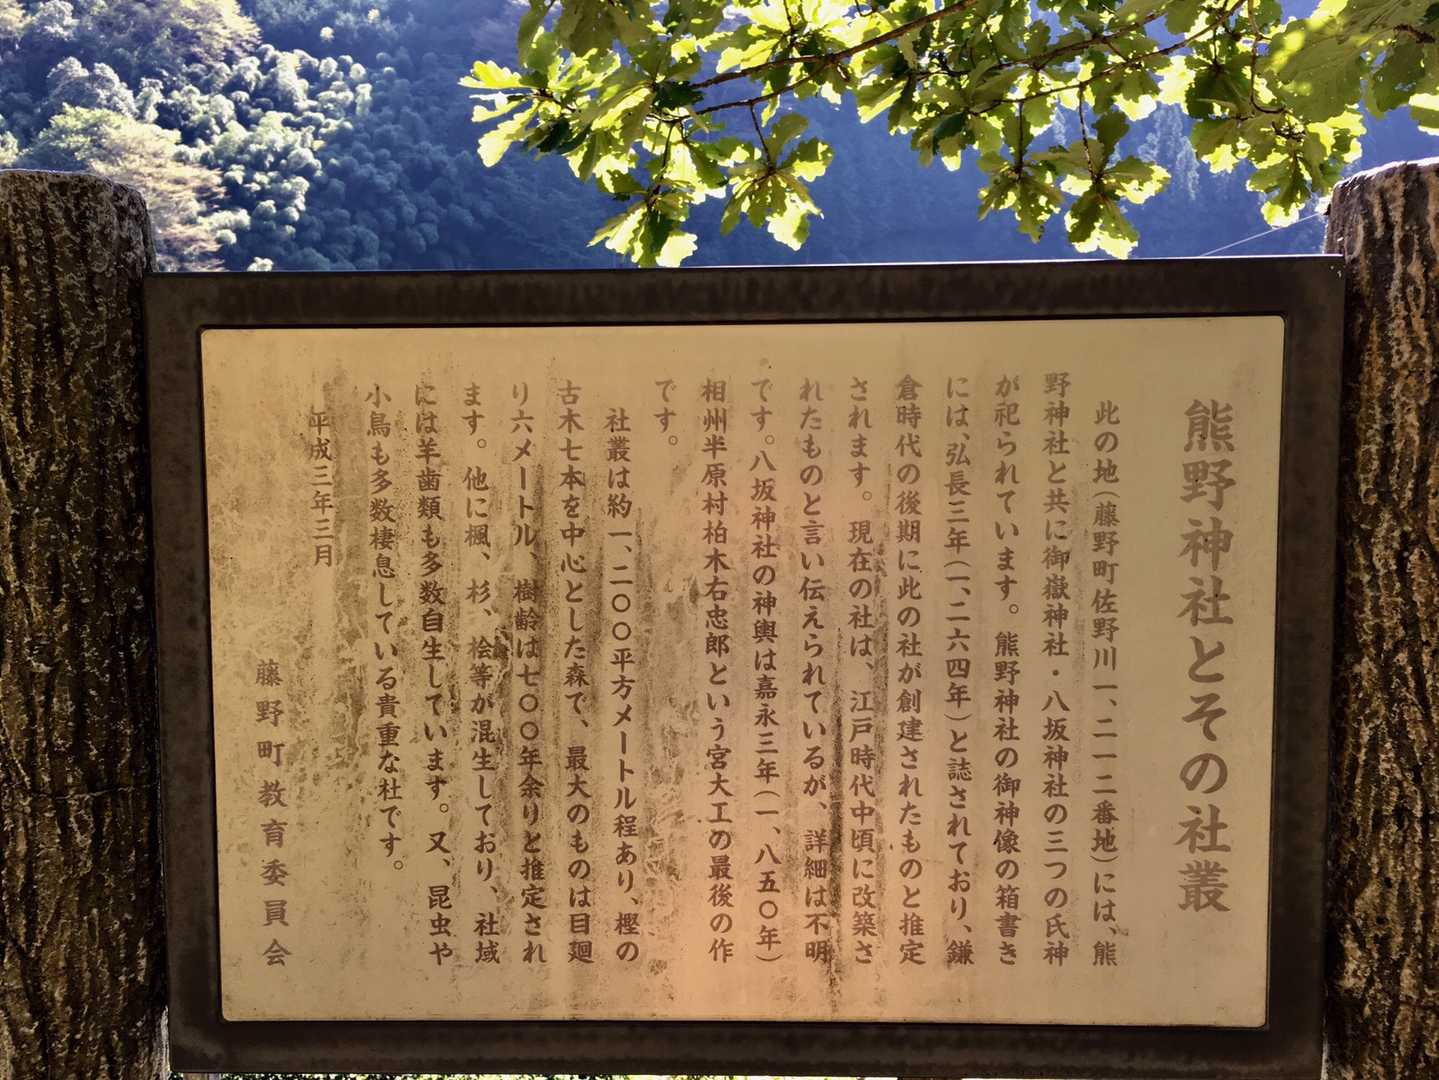 熊野神社とその社叢
此の地(藤野町佐野川一、二一二番地)には、熊
野神社と共に御嶽神社・八坂神社の三つの氏神
が祀られています。熊野神社の御神像の箱書き
には、弘長三年(一、二六四年)と誌されており、鎌
倉時代の後期に此の社が創建されたものと推定
されます。現在の社は、江戸時代中頃に改築さ
れたものと言い伝えられているが、詳細は不明
です。八坂神社の神輿は嘉永三年(一、八五〇年)
相州半原村柏木右忠郎という宮大工の最後の作
です。
社叢は約一、二〇〇平方メートル程あり、樫の
古木七本を中心とした森で、最大のものは目廻
り六メートル 樹齢は七〇〇年余りと推定され
ます。他に楓、杉、桧等が混生しており、社域
には羊歯類も多数自生しています。又、昆虫や
小鳥も多数棲息している貴重な社です。
平成三年三月
藤野町教育委員会